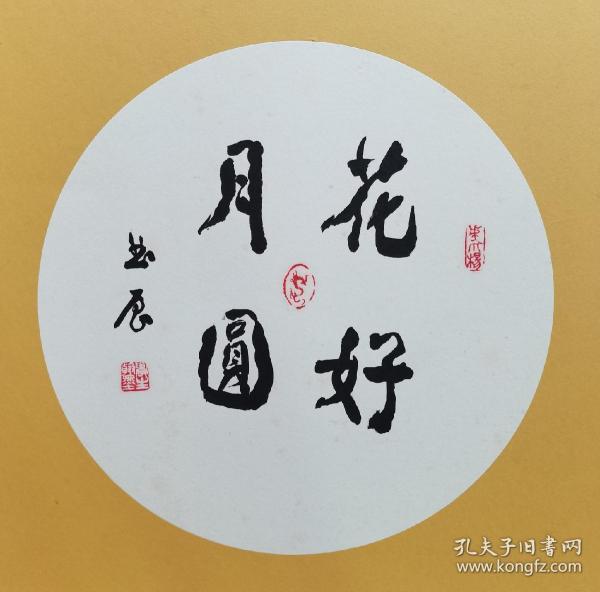 花好
月圓
孔夫子旧書网
www.kongfz.com